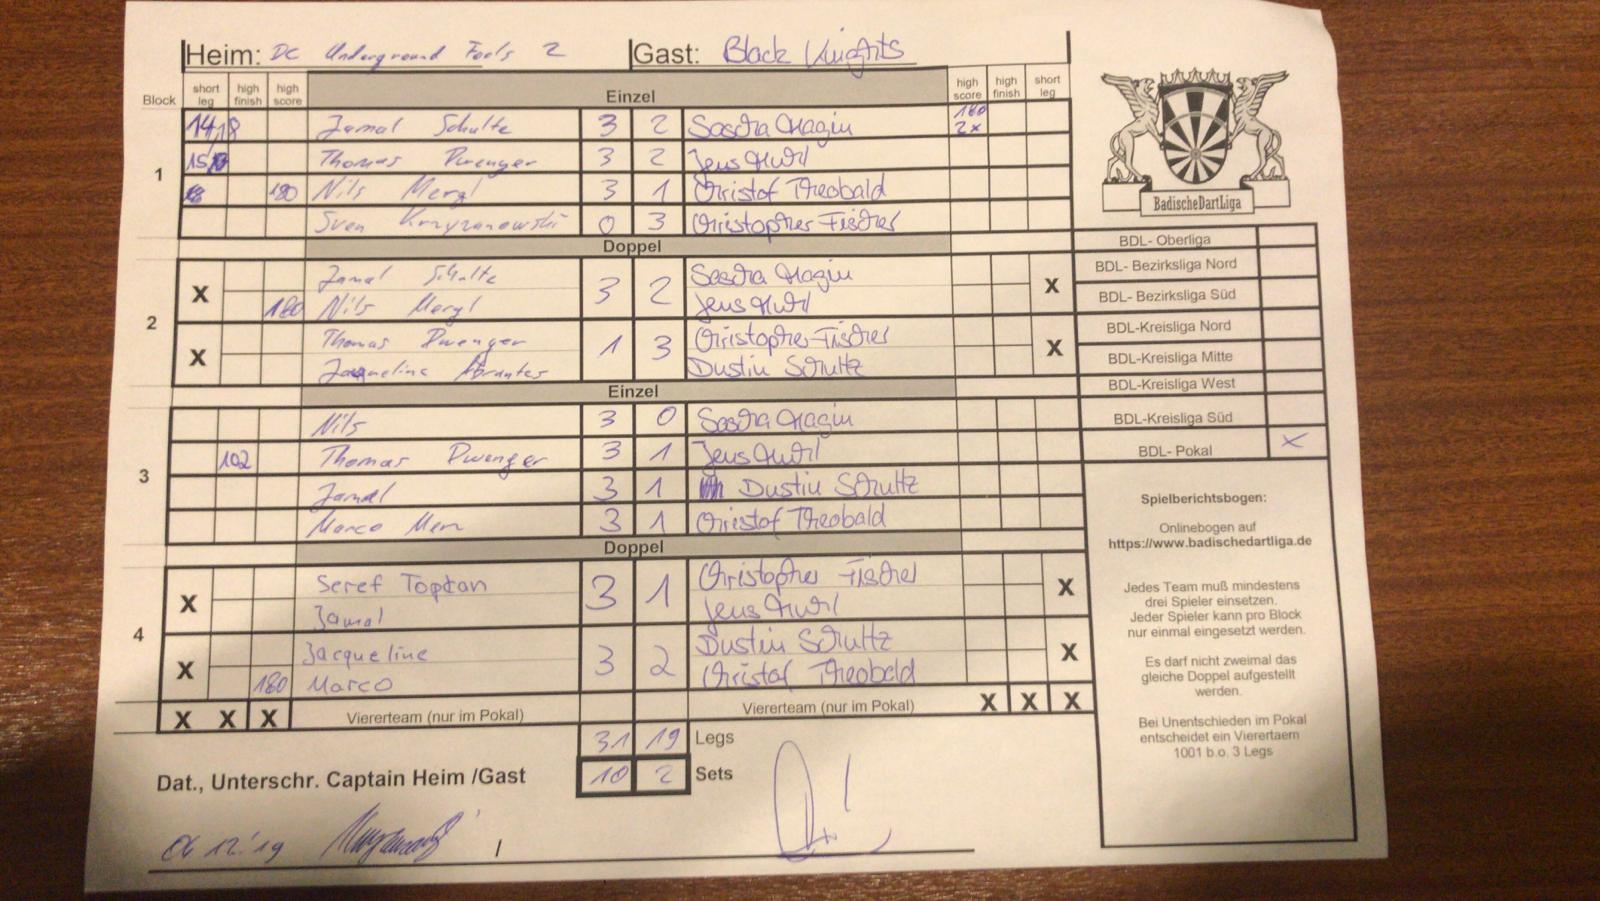 Heim: DC Underground Fools 2 Gast: Black Knights
Block short leg high finish high score Einzel high score high finish short leg
1
14,18 Jamal Schulte 3 2 Sascha Hagin 180 2x
15 Thomas Dwenger 3 2 Jens
18 180 Nils Mergl 3 1 Christof Theobald
Sven Krzyzanowski 0 3 Christopher Fischer
Doppel
2
X Jamal Schulte 3 2 Sascha Hagin X
180 Nils Mergl Jens
X Thomas Dwenger 1 3 Christopher Fischer X
Jaqueline Abrantes Dustin Schultz
Einzel
3
Nils 3 0 Sascha Hagin
102 Thomas Dwenger 3 1 Jens
Jamal 3 1 Dustin Schultz
Marco 3 1 Christof Theobald
Doppel
4
X Seref Toptan 3 1 Christopher Fischer X
Jamal Jens
X Jacqueline 3 2 Dustin Schultz X
180 Marco Christof Theobald
X X X Viererteam (nur im Pokal) Viererteam (nur im Pokal) X X X
31 19 Legs
Dat., Unterschr. Captain Heim /Gast 10 2 Sets
06.12.'19 /
BadischeDartLiga
BDL- Oberliga
BDL- Bezirksliga Nord
BDL- Bezirksliga Süd
BDL-Kreisliga Nord
BDL-Kreisliga Mitte
BDL-Kreisliga West
BDL-Kreisliga Süd
BDL- Pokal X
Spielberichtsbogen:
Onlinebogen auf
https://www.badischedartliga.de
Jedes Team muß mindestens
drei Spieler einsetzen.
Jeder Spieler kann pro Block
nur einmal eingesetzt werden.
Es darf nicht zweimal das
gleiche Doppel aufgestellt
werden.
Bei Unentschieden im Pokal
entscheidet ein Vierertaem
1001 b.o. 3 Legs